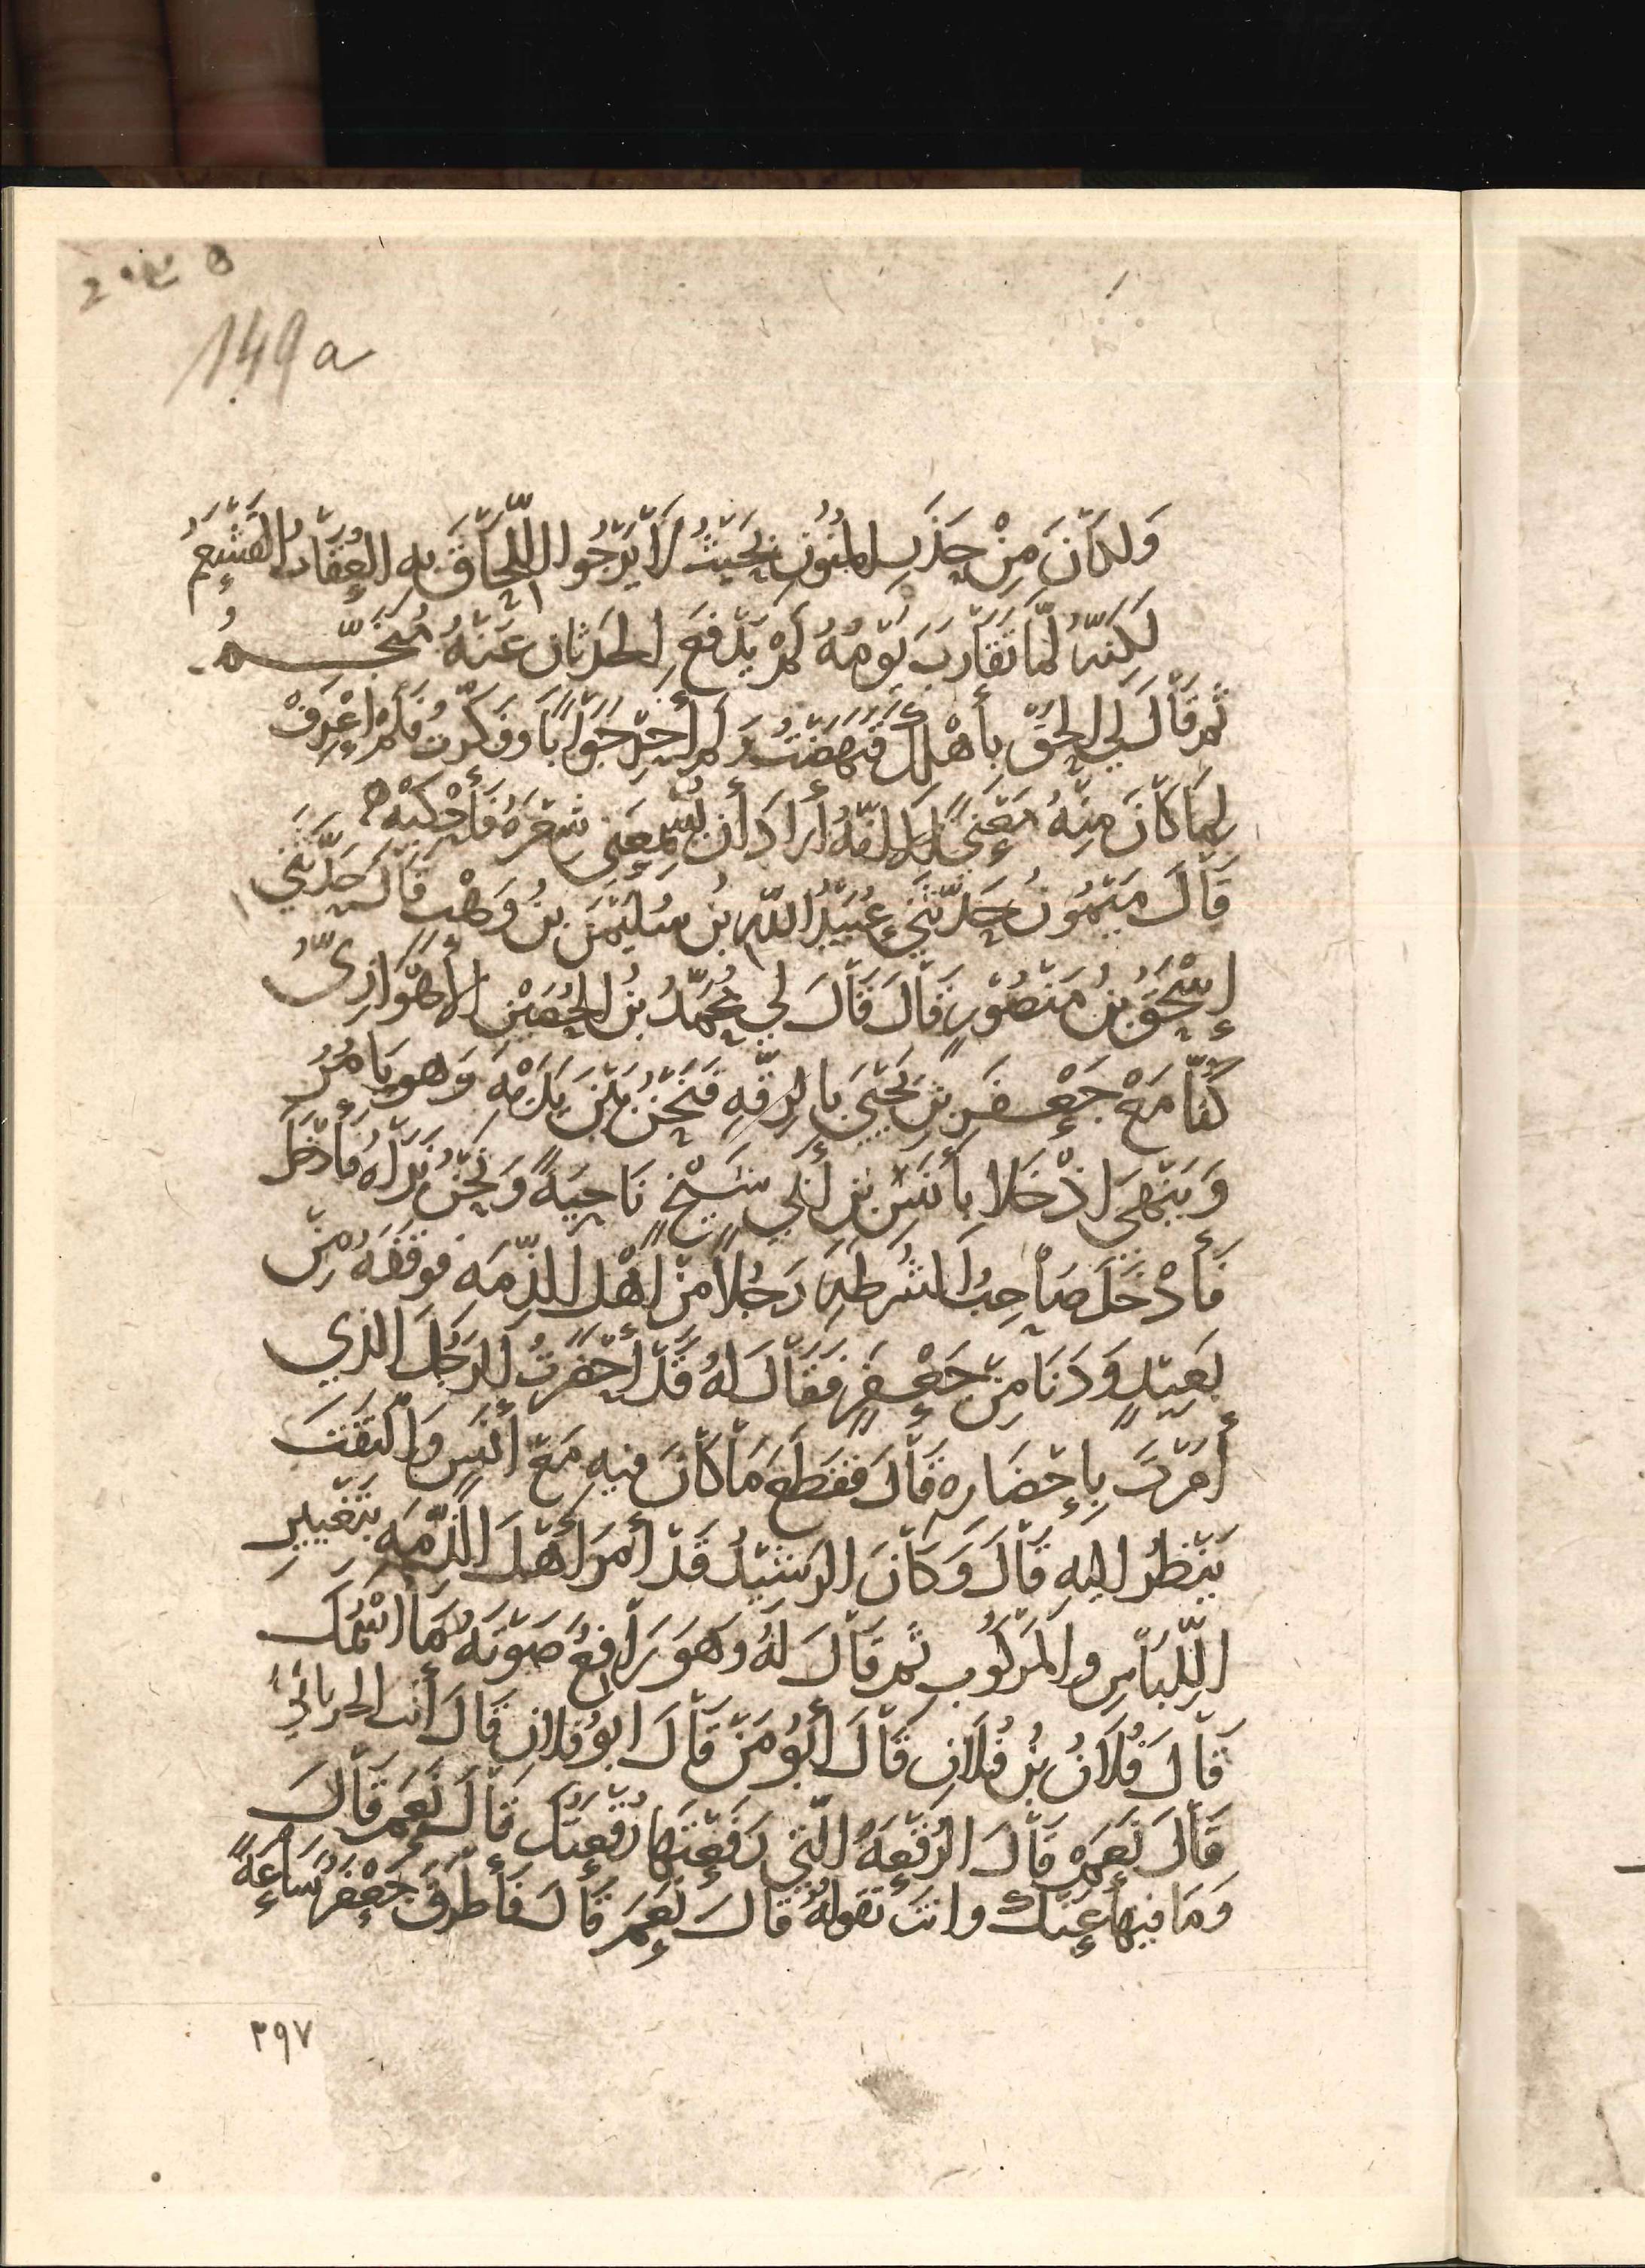 149 a
وَلكَانَ مِنْ حَذَرِ المَنُونِ بِحَيْثُ لَا يَرْجُوا اللِّحَاقَ بِهِ العُقَابُ القَشْعَمُ
لَكِنَّهُ لَمَّا تَقَارَبَ يَوْمُهُ لَمْ يَدْفَعِ الحَدَثَانِ عَنْهُ مُنَجِّمُ
ثُمَّ قَالَ لِي الحَقْ بِأَهْلِكَ فَنَهَضْتُ وَلَمْ أُحِرْ جَوَابًا وَفَكَّرْتُ فَلَمْ أَعْرِفْ
لِمَا كَانَ مِنْهُ مَعْنًى إِلَّا أَنَّهُ أَرَادَ أَنْ يُسْمِعَنِي شِعْرَهُ فَأَحْكِيَهُ
قَالَ مَيْمُونُ حَدَّثَنِي عُبَيْدُ اللهِ بْنُ سُلَيْمَنَ بْنِ وَهْبٍ قَالَ حَدَّثَنِي
إِسْحَقُ بْنُ مَنْصُورٍ قَالَ قَالَ لِي مُحَمَّدُ بْنُ الحُصَيْنِ الأَهْوَازِيُّ
كُنَّا مَعَ جَعْفَرِ بْنِ يَحْيَى بِالرَّقَّةِ فَنَحْنُ بَيْنَ يَدَيْهِ وَهُوَ يَأْمُرُ
وَيَنْهَى إِذْ خَلَا بِأَنَسِ بْنِ أَبِي شَيْخٍ نَاحِيَةً وَنَحْنُ نَرَاهُ فَأُدْخِلَ
فَأَدْخَلَ صَاحِبُ الشُرْطَةِ رَجُلًا مِنْ أَهْلِ الذِّمَّةِ فَوَقَفَهُ مِنْ
بَعِيدٍ وَدَنَا مِنْ جَعْفَرٍ فَقَالَ لَهُ قَدْ أَحْضَرْتُ الرَجُلَ الذِي
أَمَرْتَ بِإِحْضَارِهِ قَالَ فَقَطَعَ مَا كَانَ فِيهِ مَعَ أَنَسٍ وَالْتَفَتَ
يَنْظُرُ إِلَيهِ قَالَ وَكَانَ الرَشِيدُ قَدْ أَمَرَ أَهْلَ الذِّمَّةِ بِتَغْيِيرِ
اللِّبَاسِ والمَرْكُوبِ ثُمَّ قَالَ لَهُ وَهُوَ رَافِعٌ صَوْتَهُ مَا اسْمُكَ
قَالَ فُلَانُ بْنُ فُلَانٍ قَالَ أَبُو مَنْ قَالَ ابُو فُلَانٍ قَالَ أَنْتَ الحرانيُّ
قَالَ نَعَمْ قَالَ الرُقْعَةُ الَّتِي رَفَعْتَهَا رُقْعَتُكَ قَالَ نَعَمْ قَالَ
وَمَا فِيهَا عَنْكَ وانتَ تَقُولُهُ قَالَ نَعَمْ قَالَ فَأَطْرَقَ جَعْفَرٌ سَاعَةً
٣٩٧